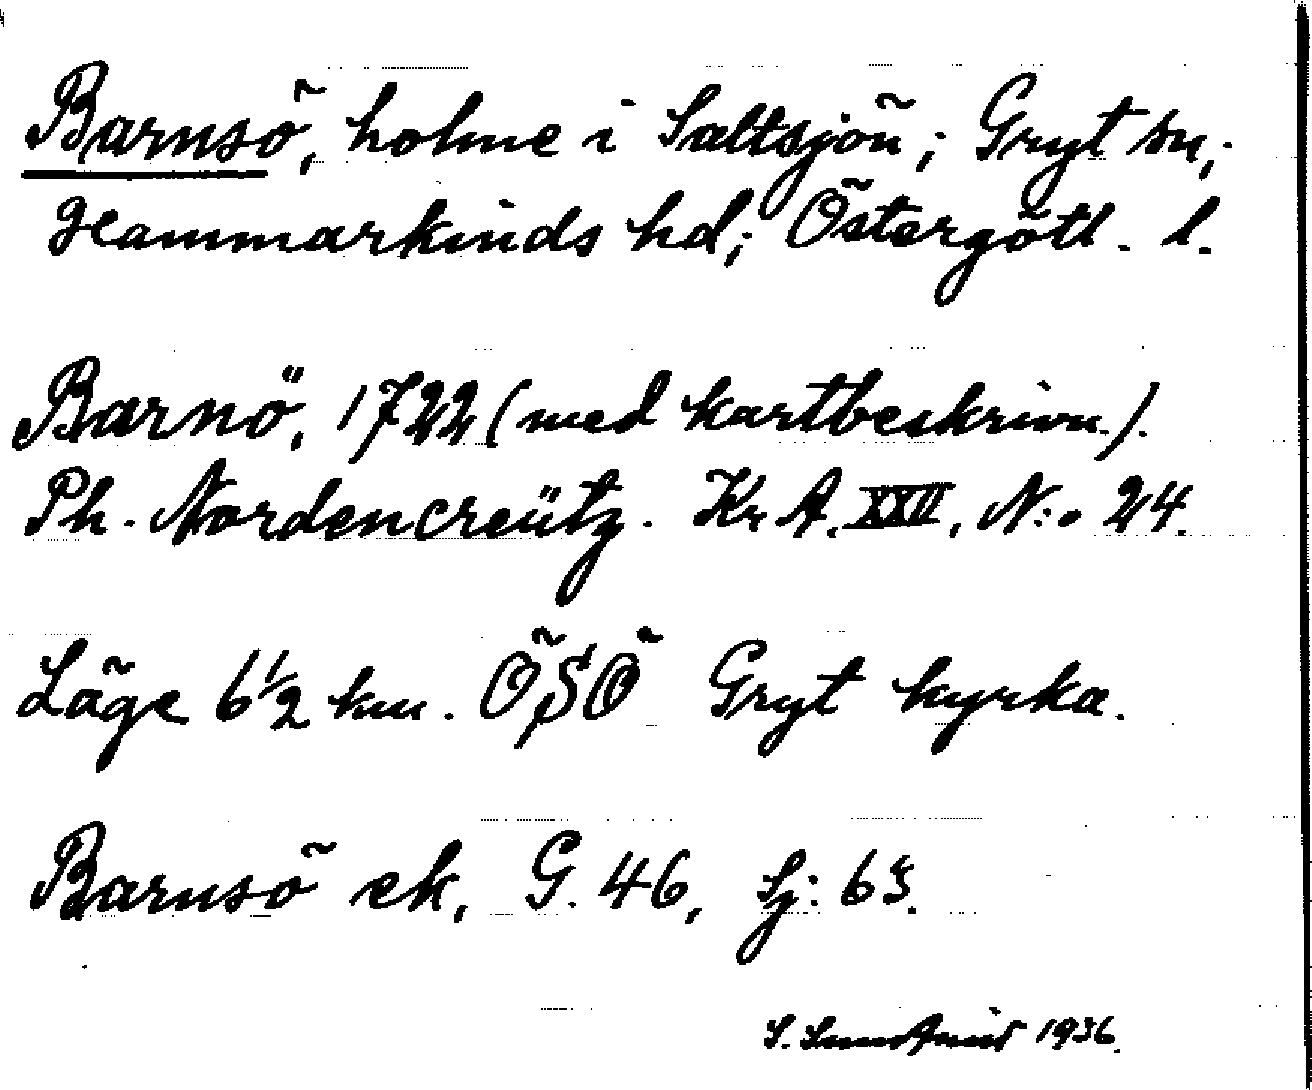 Barnsö, holme i Saltsjön; Gryt sn;
Hammarkinds hd; Östergötl. l.
Barnö, 1722 (med kartbeskrivn.).
Ph. Nordencreütz. Kr A. XXII, N:o 24.
Läge 6 1/2 km. ÖSÖ Gryt kyrka.
Barnsö ek, G. 46, Sj: 65.
S. 1936.